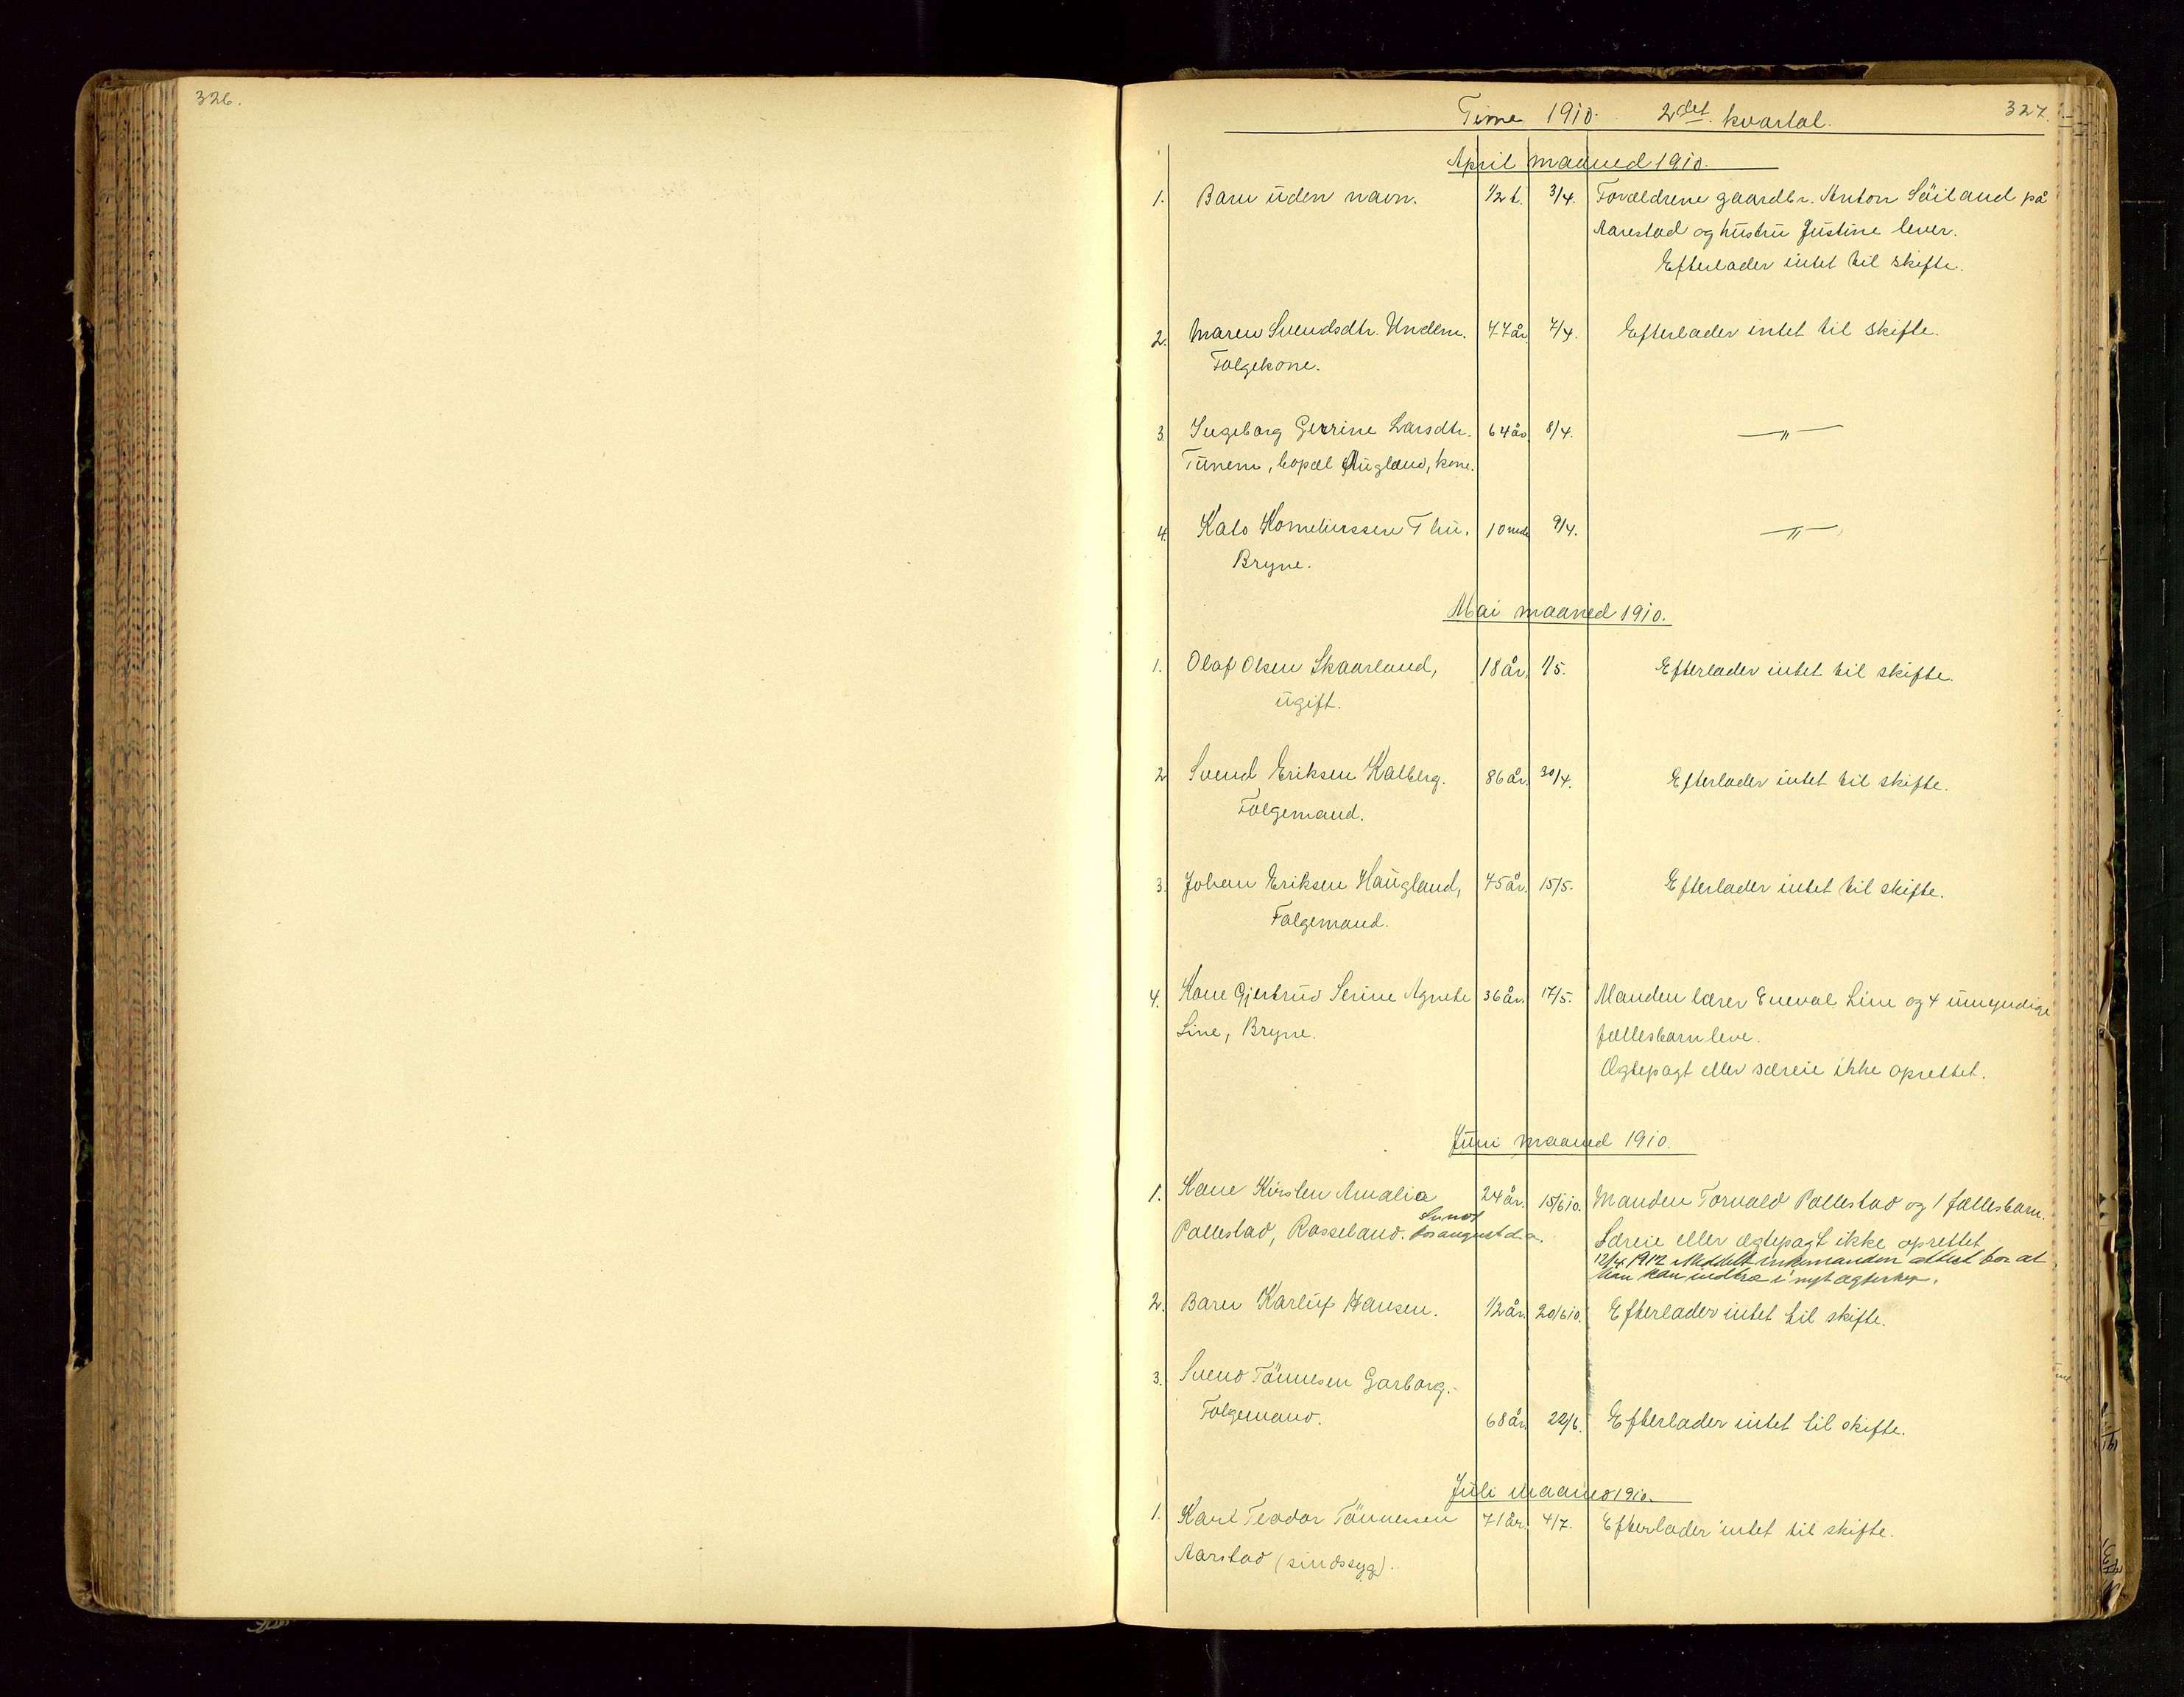 326.
Time 1910. 2det. kvartal. 327.
April maaned 1910.
1. Barn uden navn. 1/2 t. 3/4. Forældrene gaardbr. Anton Söiland på
Aarestad og hustru Justine lever.
Efterlader intet til skifte.
2. Maren Svendsdtr. Undem. 77 år 7/4. Efterlader intet til skifte.
Folgekone.
3. Ingeborg Gerrine Larsdtr. 64 år 8/4. — " —
Tunem, bopæl Augland, kone.
4. Kato Korneliussen Thu. 10 mdr 9/4. — " —
Bryne.
Mai maaned 1910.
1. Olaf Olsen Skaarland, 18 år, 1/5. Efterlader intet til skifte.
ugift.
2 Svend Eriksen Kalberg. 86 år. 30/4. Efterlader intet til skifte.
Folgemand.
3. Johan Eriksen Haugland, 75 år. 15/5. Efterlader intet til skifte.
Folgemand.
4. Kone Gjertrud Serine Agnete 36 år. 17/5. Manden lærer Eneval Line og 4 umyndige
Line, Bryne. fællesbarn leve.
Ægtepagt eller særeie ikke oprettet.
Juni maaned 1910.
1. Kone Kirsten Amalia 24 år. 15/6 10. Manden Torvald Pollestad og 1 fællesbarn.
Pollestad, Rosseland. Særeie eller ægtepagt ikke oprettet
12/4 1912 Meddelt enkemanden attest for at
han kan indtræ i nyt ægteskap.
2. Barn Karluf Hansen. 1/2 år. 20/6 10. Efterlader intet til skifte.
3. Svend Tönnesen Garborg.
Folgemand. 68 år 22/6. Efterlader intet til skifte.
Juli maaned 1910.
1. Karl Teodor Tönnessen 71 år. 4/7. Efterlader intet til skifte.
Aarstad (sindssyg).